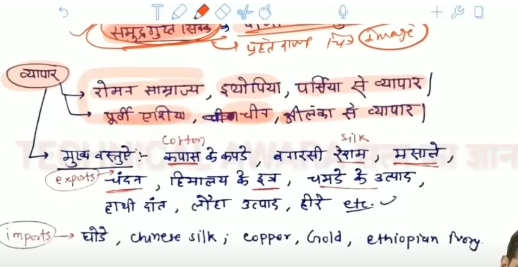 समुद्रगुप्त सिक्के
पहले राजा चित्र image
व्यापार
रोमन साम्राज्य, इथोपिया, पर्सिया से व्यापार|
पूर्वी एशिया, चीन, श्रीलंका से व्यापार|
cotton silk
मुख्य वस्तुऐं:- कपास के कपडे, बनारसी रेशम, मसाले,
exports चंदन, हिमालय के इत्र, चमडे के उत्पाद,
हाथी दांत, लोहा उत्पाद, हीरे etc.
imports → घोडे, chinese silk; copper, Gold, ethiopian Ivory